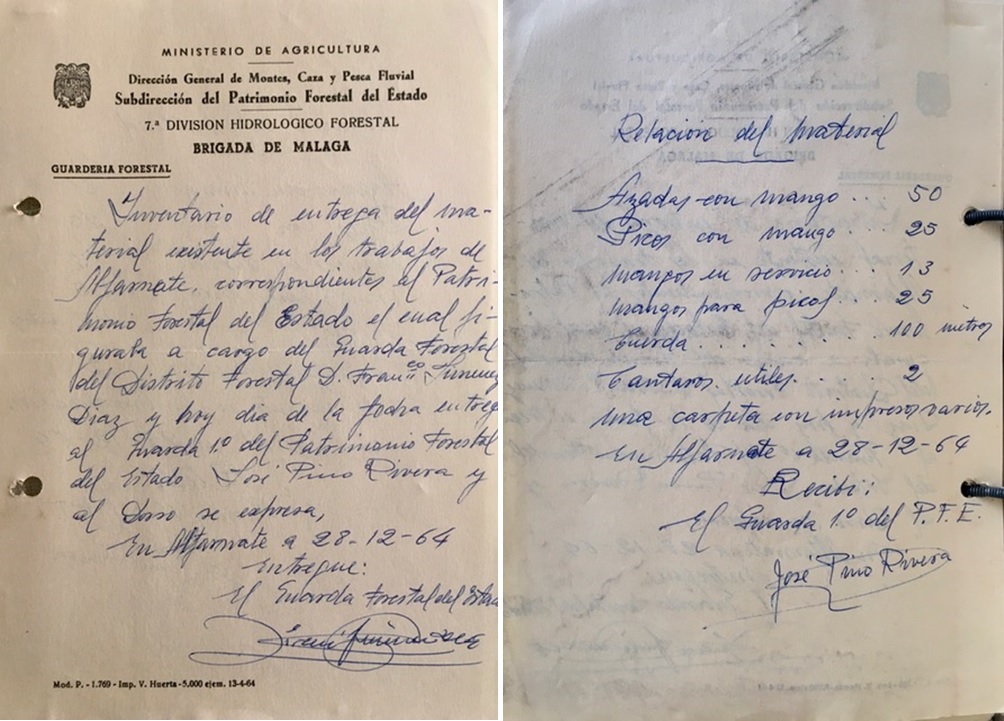 MINISTERIO DE AGRICULTURA
Dirección General de Montes, Caza y Pesca Fluvial
Subdirección del Patrimonio Forestal del Estado
7.ª DIVISION HIDROLOGICO FORESTAL
BRIGADA DE MALAGA
GUARDERIA FORESTAL
Inventario de entrega del ma-
terial existente en los trabajos de
Alfarnate, correspondientes al Patri-
monio Forestal del Estado el cual fi-
guraba a cargo del Guarda Forestal
del Distrito Forestal D. Franco Jimenez
Diaz y hoy dia de la fecha entrega
al Guarda 1.º del Patrimonio Forestal
del Estado José Pino Rivera y
al Dorso se expresa,
En Alfarnate a 28-12-64
Entregue:
El Guarda Forestal del Estado
Mod. P. - 1.769 - Imp. V. Huerta - 5.000 ejem. 13-4-64
Relacion del material
Azadas con mango .. 50
Picos con mango ... 25
mangos en servicio ... 13
mangos para picos .. 25
Cuerda ........ 100 metros
Cantaros utiles .... 2
una carpeta con impresos varios.
En Alfarnate a 28-12-64
Recibi:
El Guarda 1.º del P.F.E.
José Pino Rivera